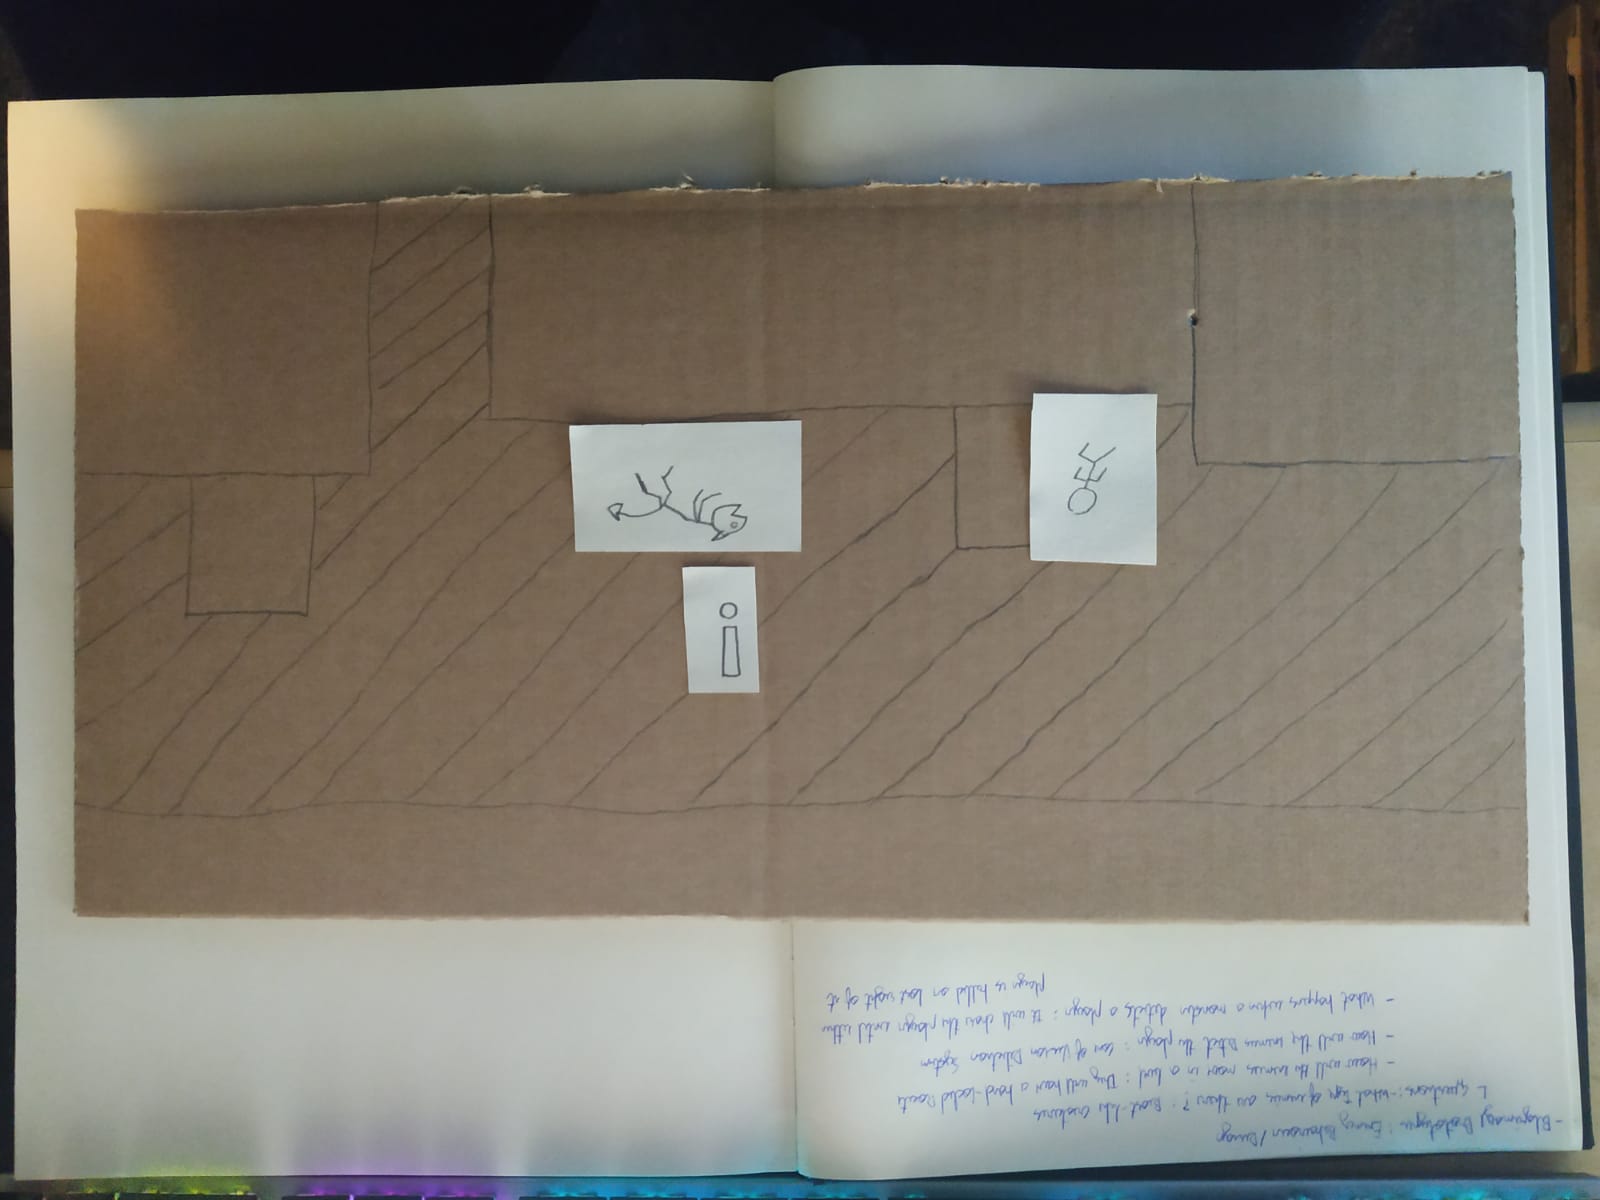 - Pilgrimage Prototype: Enemy Behaviour/Design
L Questions: - What type of enemies are there? : Beast-like creatures
- How will the enemies move in a level : They will have a hard-coded Route
- How will the enemies Detect the player : Cone of Vision Detection System
- What happens when a monster detects a player : It will chase the player until either
player is killed or lost sight of it
!